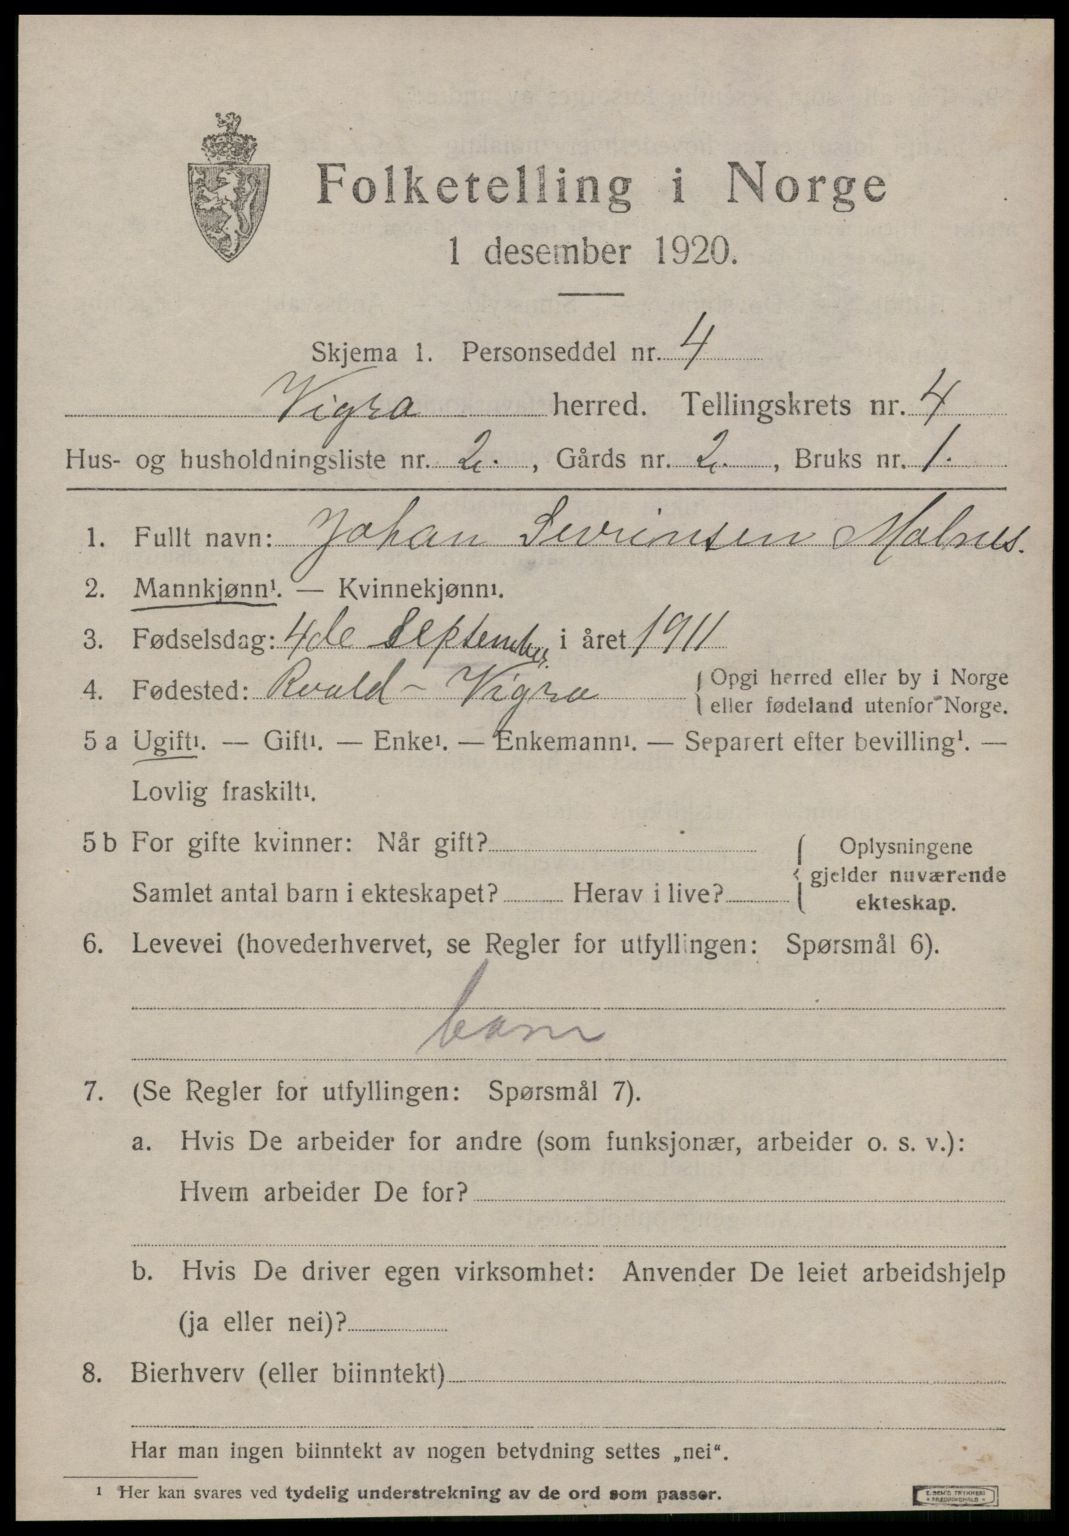 Folketelling i Norge
1 desember 1920.
Skjema 1. Personseddel nr. 4
Vigra herred. Tellingskrets nr. 4
Hus- og husholdningsliste nr. 2. , Gårds nr. 2. , Bruks nr. 1.
1. Fullt navn: Johan Sevrinsen Molnes.
2. Mannkjønn¹. — Kvinnekjønn¹.
3. Fødselsdag: 4de September i året 1911
4. Fødested: Roald - Vigra { Opgi herred eller by i Norge
eller fødeland utenfor Norge.
5 a Ugift¹. — Gift¹. — Enke¹. — Enkemann¹. — Separert efter bevilling¹. —
Lovlig fraskilt¹.
5 b For gifte kvinner: Når gift? { Oplysningene
gjelder nuværende
Samlet antal barn i ekteskapet? Herav i live?
ekteskap.
6. Levevei (hovederhvervet, se Regler for utfyllingen: Spørsmål 6).
barn
7. (Se Regler for utfyllingen: Spørsmål 7).
a. Hvis De arbeider for andre (som funksjonær, arbeider o. s. v.):
Hvem arbeider De for?
b. Hvis De driver egen virksomhet: Anvender De leiet arbeidshjelp
(ja eller nei)?
8. Bierhverv (eller biinntekt)
Har man ingen biinntekt av nogen betydning settes „nei“.
¹ Her kan svares ved tydelig understrekning av de ord som passer.